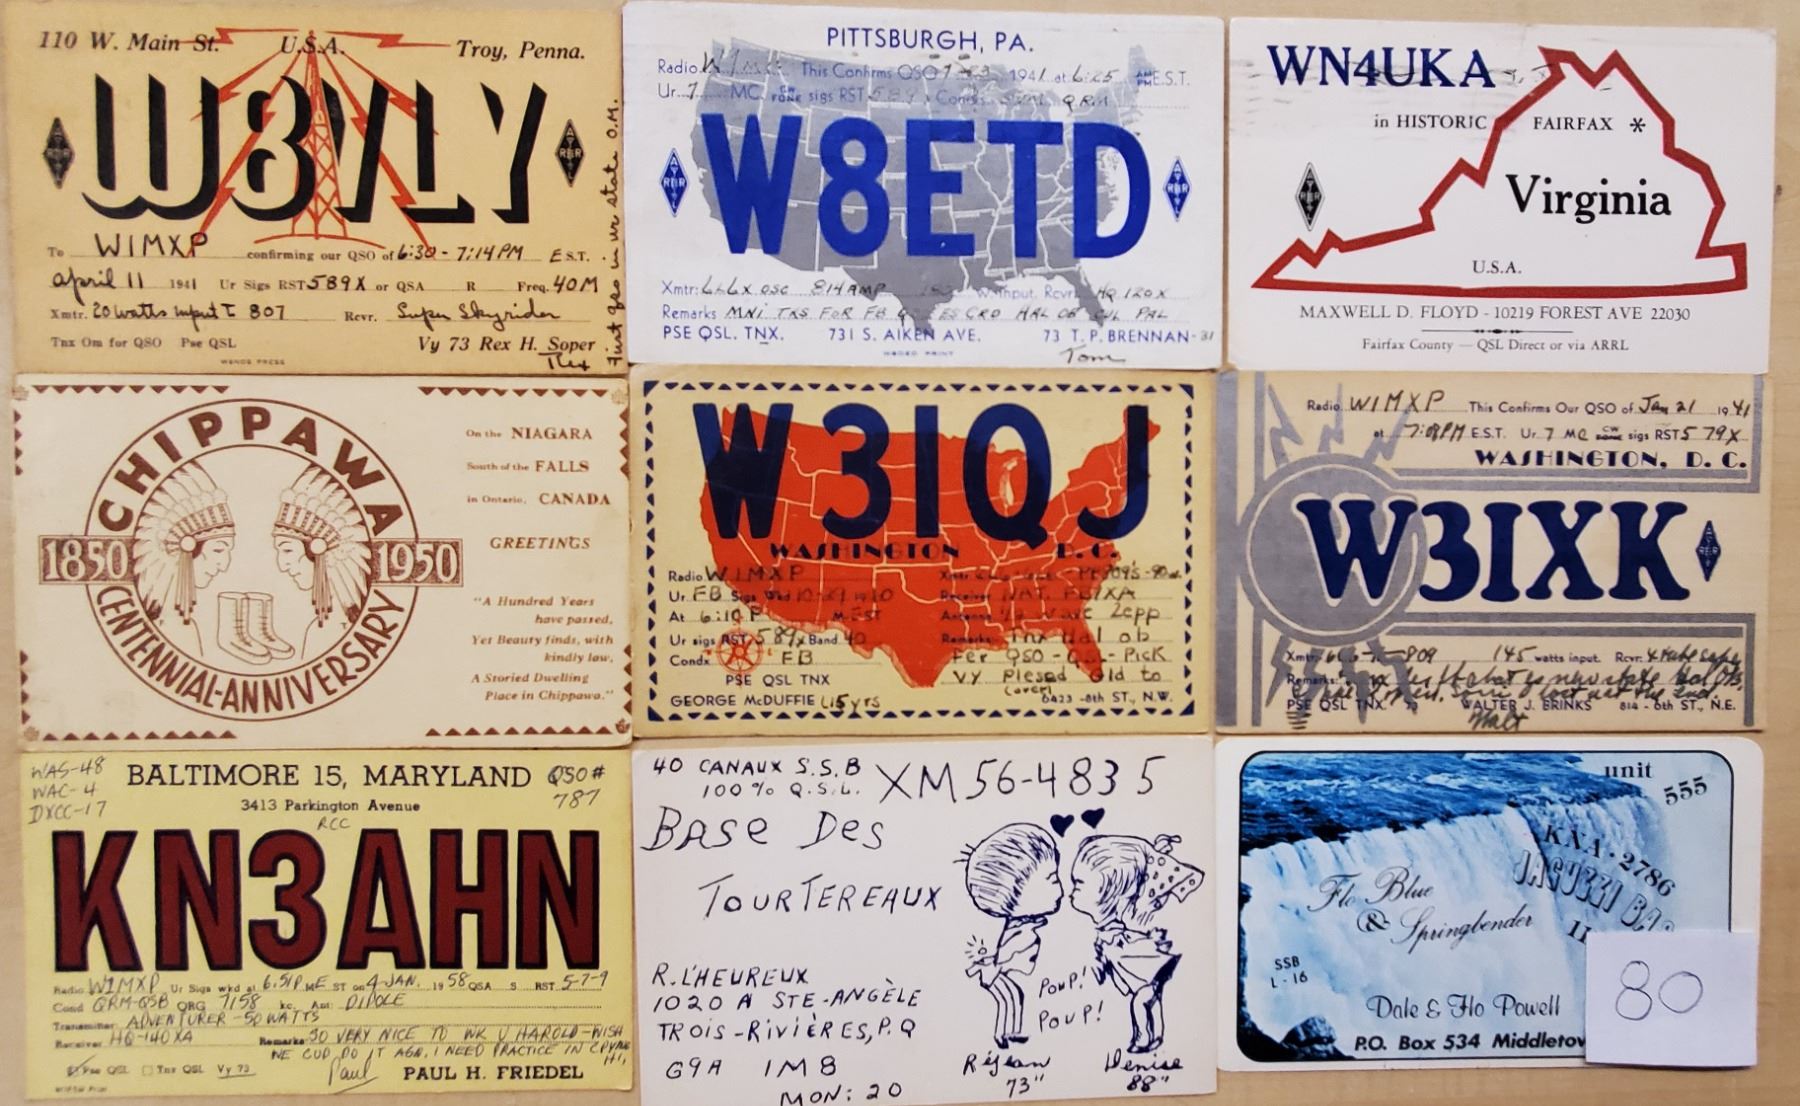 110 W. Main St. U.S.A. Troy, Penna.
W8VLY
To W1MXP confirming our QSO of 6:30 - 7:14 PM E.S.T.
April 11 1941 Ur Sigs RST 589X or QSA R Freq. 40M
Xmtr. 20 watts input T 807 Rcvr. Super Skyrider
Tnx Om for QSO Pse QSL Vy 73 Rex H. Soper
WENDE PRESS Rex
Just QSO in ur state O.M.
PITTSBURGH, PA.
Radio W1M This Confirms QSO 1941 at 6:25 E.S.T.
Ur 7 MC. CW FONE sigs RST 589X Condx QRM
W8ETD
Xmtr: 6L6X OSC 814 AMP Input. Rcvr. HQ 120X
Remarks MNI TKS FOR FB CUL PAL
PSE QSL. TNX. 731 S. AIKEN AVE. 73 T. P. BRENNAN-31
Tom
WN4UKA
in HISTORIC FAIRFAX *
Virginia
U.S.A.
MAXWELL D. FLOYD - 10219 FOREST AVE 22030
Fairfax County — QSL Direct or via ARRL
CHIPPAWA
1850 1950
CENTENNIAL-ANNIVERSARY
On the NIAGARA
South of the FALLS
in Ontario, CANADA
GREETINGS
"A Hundred Years
have passed,
Yet Beauty finds, with
kindly law,
A Storied Dwelling
Place in Chippawa."
W3IQJ
WASHINGTON D. C.
Radio W1MXP Xmtr
Ur FB Sigs Wkd Receiver NAT. FB7XA
At 6:10 P M EST Antenna 1/2 wave Zepp
Ur sigs RST 589x Band 40 Remarks Tnx Hal ob
Condx FB fer QSO - QSL - Pick
PSE QSL TNX VY Plesed Old to
(over)
GEORGE McDUFFIE (15 yrs 6423 -8th ST., N.W.
Radio W1MXP This Confirms Our QSO of Jan 21 1941
at 7:08PM E.S.T. Ur 7 MC CW FONE sigs RST 579X
WASHINGTON, D. C.
W3IXK
Xmtr: 809 145 watts input. Rcvr:
Remarks:
PSE QSL TNX. 73 WALTER J. BRINKS 814 - 6th ST., N.E.
Walt
WAS-48
WAC-4
DXCC-17
BALTIMORE 15, MARYLAND QSO#
787
3413 Parkington Avenue
RCC
KN3AHN
Radio W1MXP Ur Sigs wkd at 6:51 P.M. E ST on 4 JAN. 1958 QSA S RST 5-7-9
Cond QRM-QSB QRG 7158 kc. Ant: DIPOLE
Transmitter ADVENTURER - 50 WATTS
Receiver HQ-140XA Remarks SO VERY NICE TO WK U HAROLD - WISH
WE CUD DO IT AGN, I NEED PRACTICE IN
HI,
Pse QSL Tnx QSL Vy 73 Paul PAUL H. FRIEDEL
40 CANAUX S.S.B XM56-4835
100% Q.S.L.
BASE DES
TOURTEREAUX
R. L'HEUREUX
1020 A STE-ANGÈLE
TROIS-RIVIÈRES, P.Q
G9A 1M8
MON: 20
POUP!
POUP!
Réjean Denise
73" 88"
unit
555
KXA-2786
JACUZZI
Flo Blue
& Springbender
SSB
L-16
Dale & Flo Powell
P.O. Box 534
80